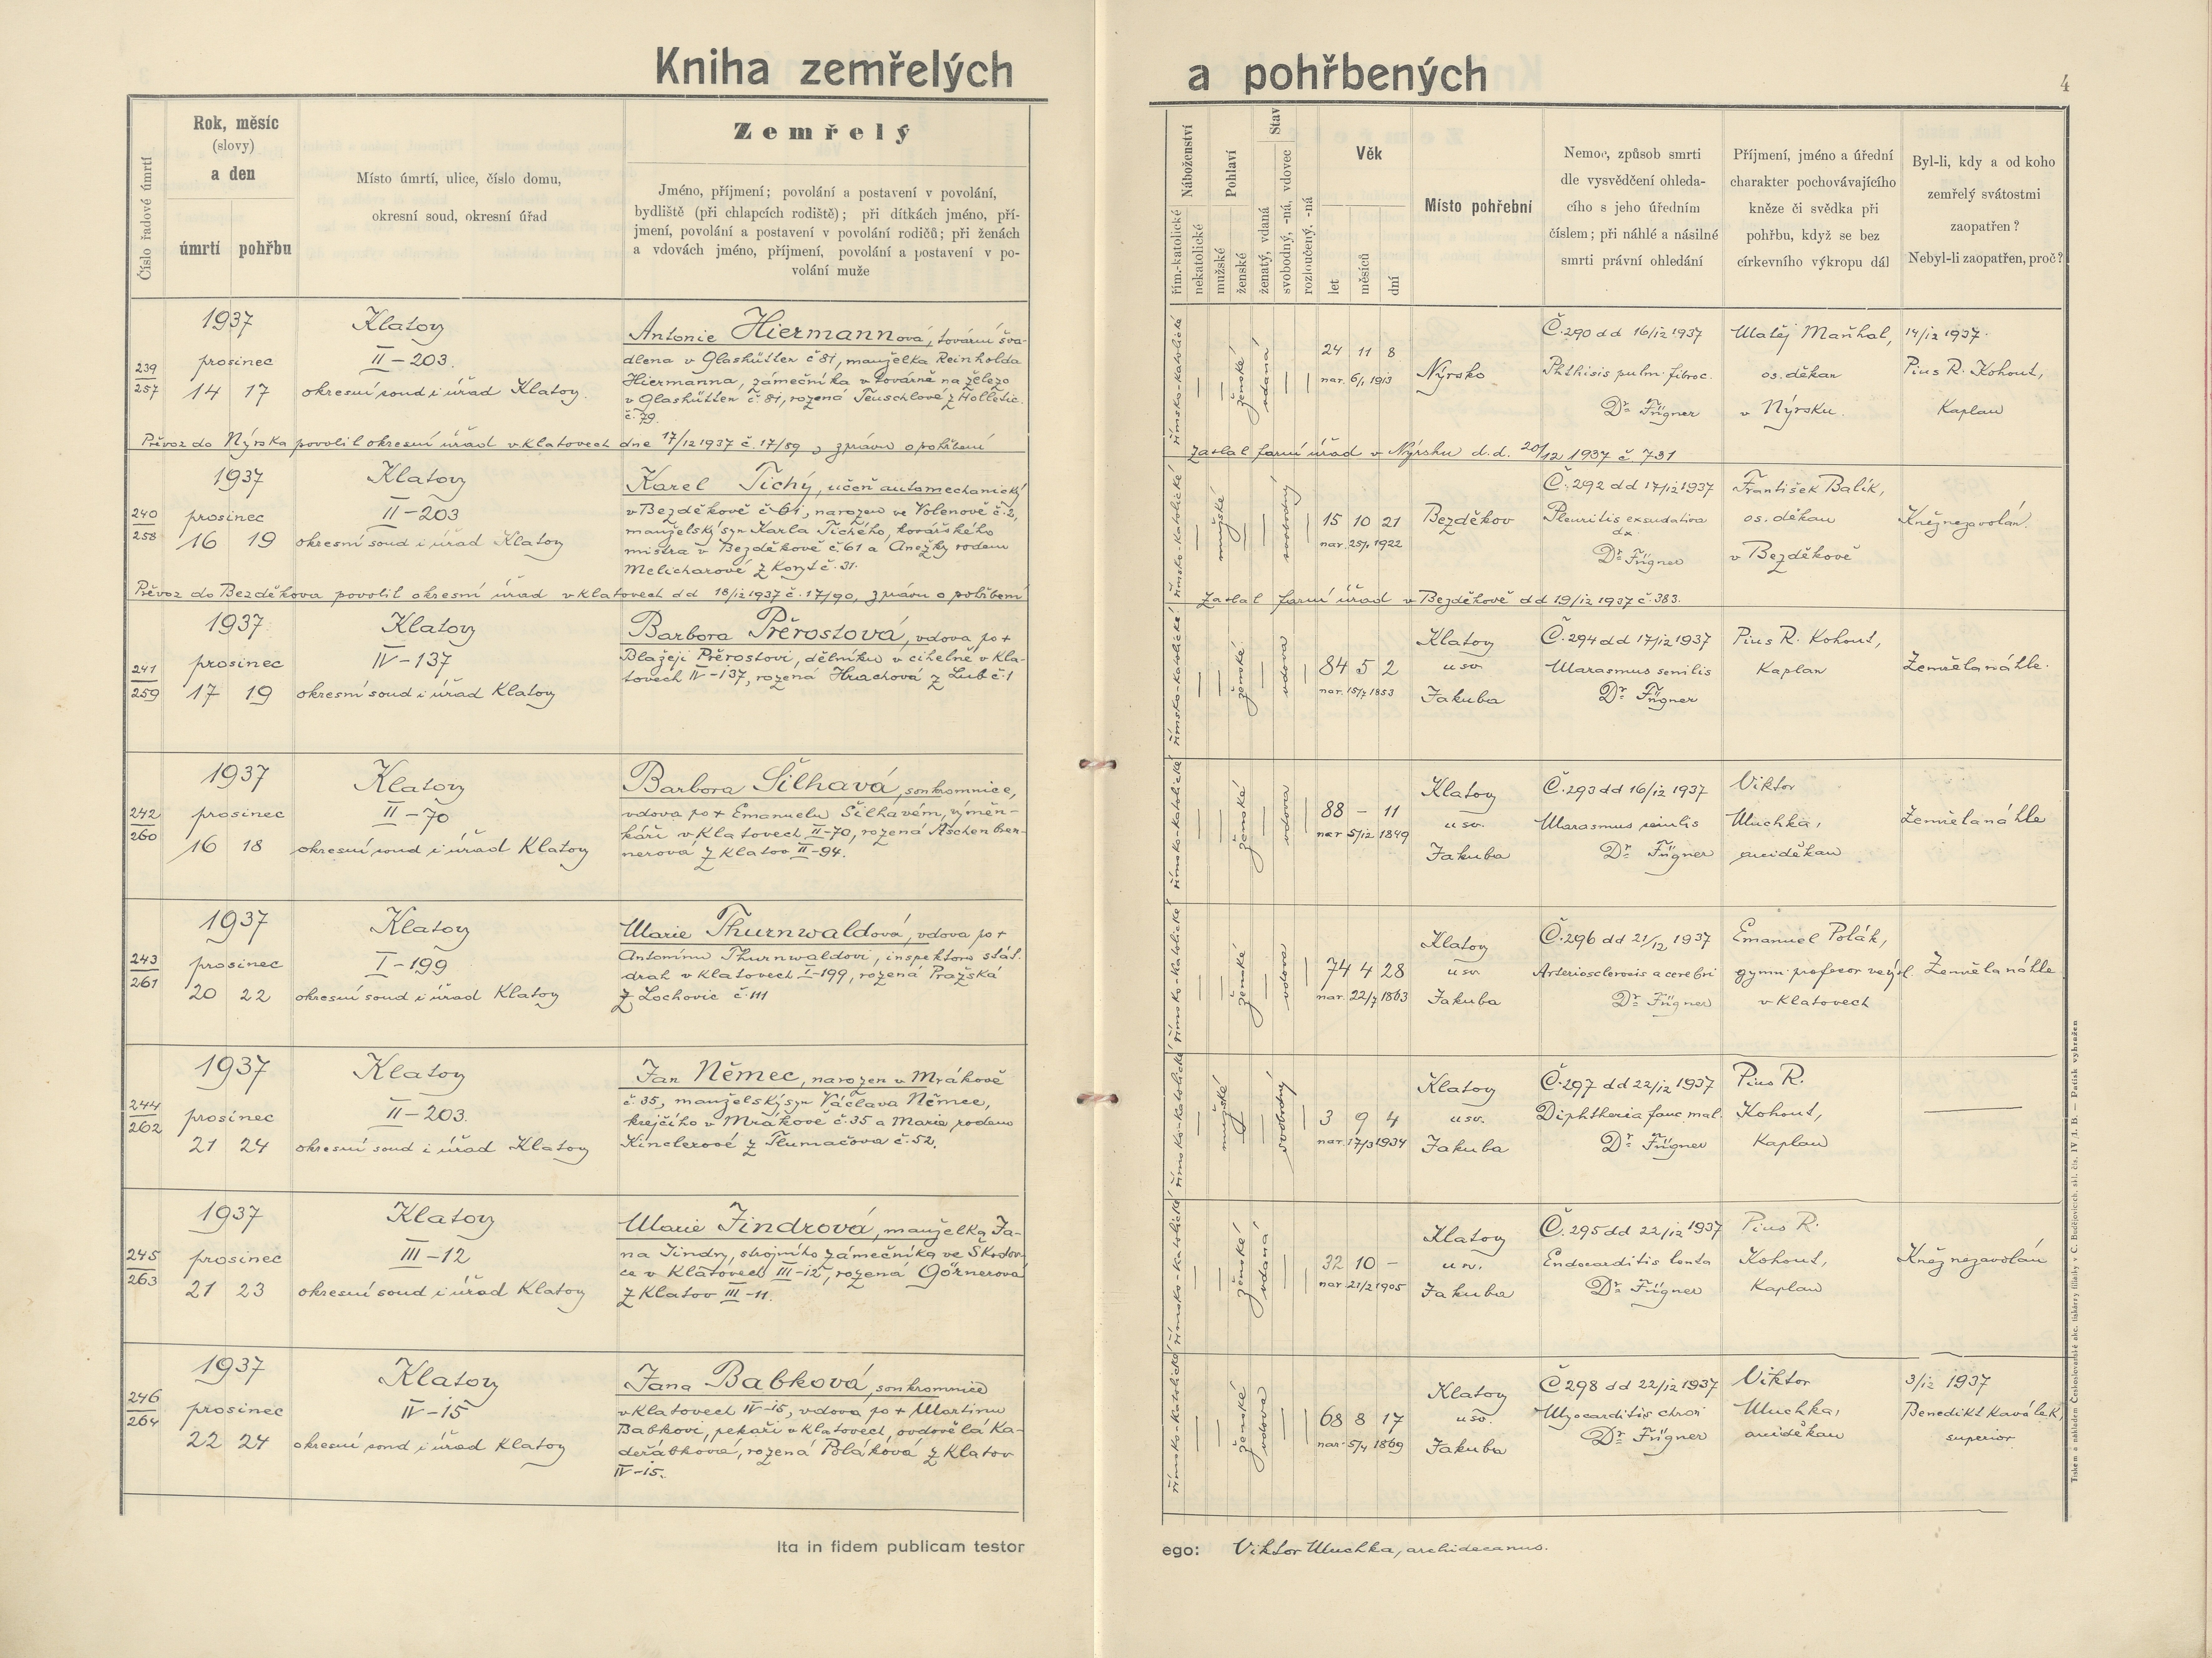 Kniha zemřelých a pohřbených
4
Číslo řadové úmrtí
Rok, měsíc
(slovy)
a den
úmrtí pohřbu
Místo úmrtí, ulice, číslo domu,
okresní soud, okresní úřad
Zemřelý
Jméno, příjmení; povolání a postavení v povolání,
bydliště (při chlapcích rodiště); při dítkách jméno, pří-
jmení, povolání a postavení v povolání rodičů; při ženách
a vdovách jméno, příjmení, povolání a postavení v po-
volání muže
Náboženství
řím-katolické
nekatolické
Pohlaví
mužské
ženské
Stav
ženatý, vdaná
svobodný, -ná, vdovec
rozloučený. -ná
Věk
let
měsíců
dní
Místo pohřební
Nemoc, způsob smrti
dle vysvědčení ohleda-
cího s jeho úředním
číslem; při náhlé a násilné
smrti právní ohledání
Příjmení, jméno a úřední
charakter pochovávajícího
kněze či svědka při
pohřbu, když se bez
církevního výkropu dál
Byl-li, kdy a od koho
zemřelý svátostmi
zaopatřen?
Nebyl-li zaopatřen, proč?
239
257
1937
prosinec
14 17
Klatovy
II-203.
okresní soud i úřad Klatovy.
Antonie Hiermannová, tovární šva-
dlena v Glashütten č 81, manželka Reinholda
Hiermanna, zámečníka v továrně na železo
v Glashütten č. 81, rozená Teuschlové z Holletic.
č. 79.
římsko-katolické
ženské
vdaná
24 11 8
nar. 6/1 1913
Nýrsko
Č. 290 dd 16/12 1937
Phthisis pulm. fibroc.
Dr. Fügner
Matěj Maňhal,
os. děkan
v Nýrsku.
14/12 1937.
Pius R. Kohout,
Kaplan
Převoz do Nýrska povolil okresní úřad v Klatovech dne 17/12 1937 č. 17/89, zprávu o pohřbení
zaslal farní úřad v Nýrsku d.d. 20/12 1937 č. 731
240
258
1937
prosinec
16 19
Klatovy
II-203
okresní soud i úřad Klatovy
Karel Tichý, učeň automechanický
v Bezděkově č 61, narozen ve Volenově č. 2,
manželský syn Karla Tichého, kovářského
mistra v Bezděkově č 61 a Anežky rodem
Melicharové z Koryt č. 31.
římsko-katolické
mužské
svobodný
15 10 21
nar. 25/1 1922
Bezděkov
Č. 292 dd 17/12 1937
Pleuritis exsudativa
dx.
Dr. Fügner
František Balík,
os. děkan
v Bezděkově
Kněz nezavolán.
Převoz do Bezděkova povolil okresní úřad v Klatovech dd 18/12 1937 č. 17/90, zprávu o pohřbení
zaslal farní úřad v Bezděkově dd 19/12 1937 č. 383.
241
259
1937
prosinec
17 19
Klatovy
IV-137
okresní soud i úřad Klatovy
Barbora Přěrostová, vdova po +
Blažeji Přěrostovi, dělníku v cihelně v Kla-
tovech IV-137, rozená Hrachová z Lub č. 1
římsko-katolické
ženské
vdova
84 5 2
nar. 15/7 1853
Klatovy
u sv.
Jakuba
Č. 294 dd 17/12 1937
Marasmus senilis
Dr. Fügner
Pius R. Kohout,
Kaplan
Zemřela náhle.
242
260
1937
prosinec
16 18
Klatovy
II-70
okresní soud i úřad Klatovy
Barbora Šilhavá, soukromnice,
vdova po + Emanuelu Šilhavém, výměn-
káři v Klatovech II-70, rozená Aschenbren-
nerová z Klatov II-94.
římsko-katolické
ženské
vdova
88 - 11
nar 5/12 1849
Klatovy
u sv.
Jakuba
Č. 293 dd 16/12 1937
Marasmus senilis
Dr. Fügner
Viktor
Muchka,
arciděkan
Zemřela náhle
243
261
1937
prosinec
20 22
Klatovy
I-199
okresní soud i úřad Klatovy
Marie Thurnwaldová, vdova po +
Antonínu Thurnwaldovi, inspektoru stát.
drah v Klatovech I-199, rozená Pražská
z Lochovic č. 111
římsko-katolické
ženské
vdova
74 4 28
nar. 22/7 1863
Klatovy
u sv.
Jakuba
Č. 296 dd 21/12 1937
Arteriosclerosis a cerebri
Dr. Fügner
Emanuel Polák,
gymn. profesor ve výsl.
v Klatovech
Zemřela náhle
244
262
1937
prosinec
21 24
Klatovy
II-203.
okresní soud i úřad Klatovy
Jan Němec, narozen v Mrákově
č. 35, manželský syn Václava Němce,
krejčího v Mrákově č. 35 a Marie, rodem
Kinclerové z Tlumačova č. 52.
římsko-katolické
mužské
svobodný
3 9 4
nar. 17/3 1934
Klatovy
u sv.
Jakuba
Č. 297 dd 22/12 1937
Diphtheria fauc. mal.
Dr. Fügner
Pius R.
Kohout,
Kaplan
245
263
1937
prosinec
21 23
Klatovy
III-12
okresní soud i úřad Klatovy
Marie Jindrová, manželka Ja-
na Jindry, strojního zámečníka ve Škodov-
ce v Klatovech III-12, rozená Görnerová
z Klatov III-11.
římsko-katolické
ženské
vdaná
32 10 -
nar 21/2 1905
Klatovy
u sv.
Jakuba
Č. 295 dd 22/12 1937
Endocarditis lenta
Dr. Fügner
Pius R.
Kohout,
Kaplan
Kněz nezavolán
246
264
1937
prosinec
22 24
Klatovy
IV-15
okresní soud i úřad Klatovy
Jana Babková, soukromnice
v Klatovech IV-15, vdova po + Martinu
Babkovi, pekaři v Klatovech, ovdovělá Ka-
deřábková, rozená Poláková z Klatov
IV-15.
římsko-katolické
ženské
vdova
68 8 17
nar. 5/4 1869
Klatovy
u sv.
Jakuba
Č 298 dd 22/12 1937
Myocarditis chron
Dr. Fügner
Viktor
Muchka,
arciděkan
3/12 1937
Benedikt Kaválek,
superior
Ita in fidem publicam testor ego: Viktor Muchka, archidecanus.
Tiskem a nákladem Českoslovanské akc. tiskárny filiálky v Č. Budějovicích. skl. čís. IV /1. B — Patisk vyhražen